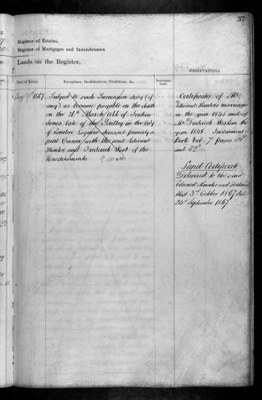 37
Register of Estates.
Register of Mortgages and Incumbrances.
Lands on the Register.
OBSERVATIONS.
Date of Entry
Exceptions, Modifications, Conditions, &c.
1867 Subject to such Succession duty (if
any) as became payable on the death
on the 26th March 1866 of
Jones late of the Poultry in the City
of London Esquire deceased formerly a
joint Owner with the said Edward
Hunter and Frederick West of the
Hereditaments
Certificate of Mr
Edward Hunter's marriage
in the year 1845 and of
Mr Frederick West's in the
year 1848. Instrument
Book Vol 7 pages
and
Land Certificate
delivered to the said
Edward Hunter and Frederick
West 3rd October 1867
26th September 1867